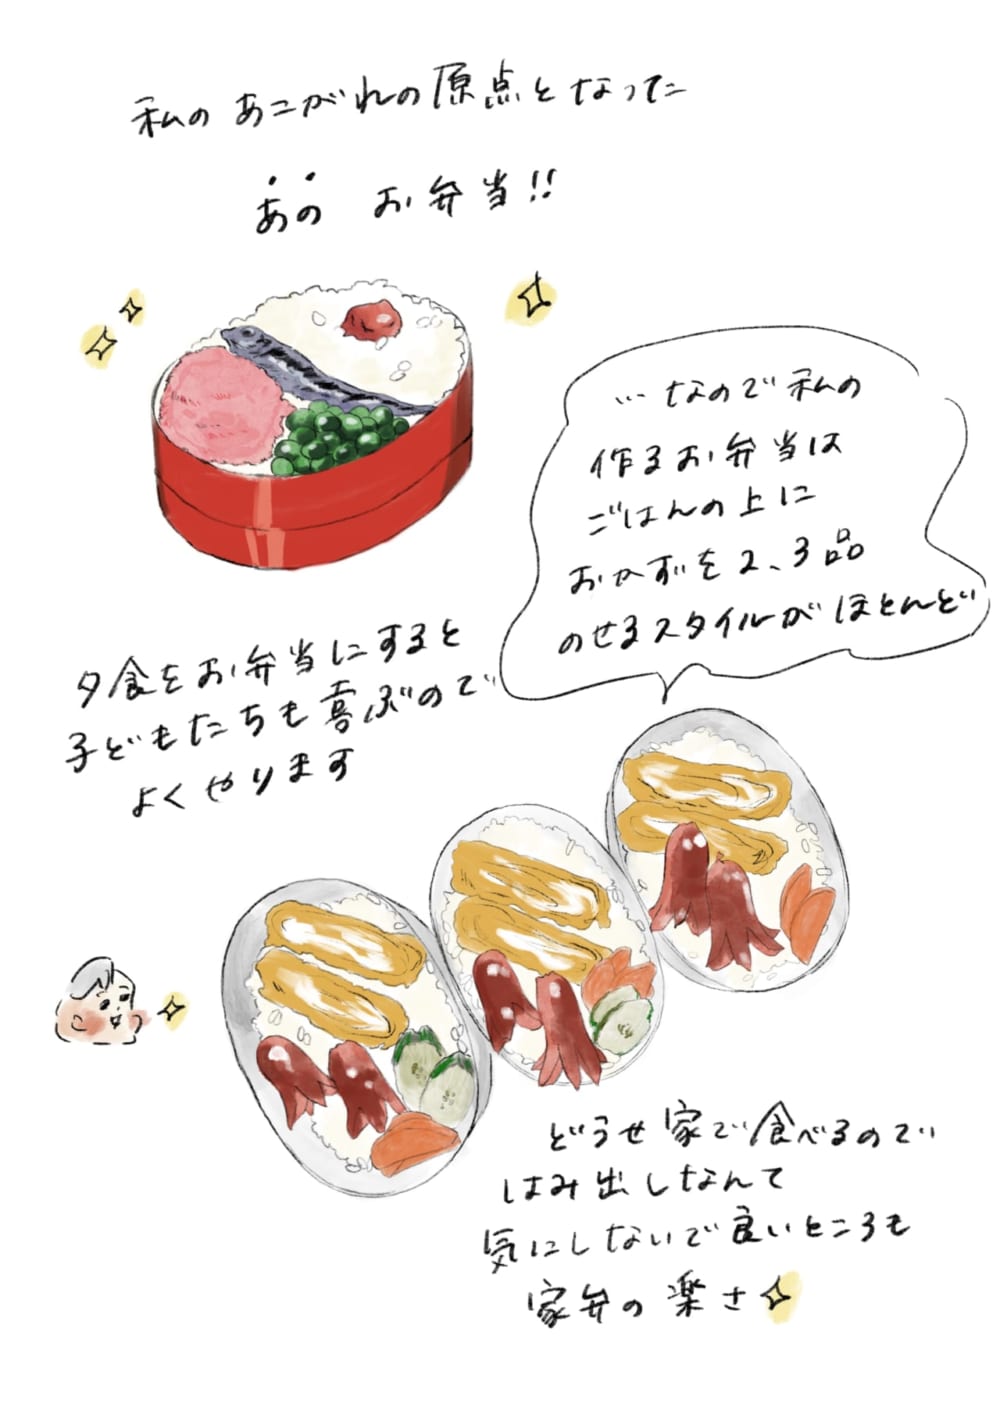 私のあこがれの原点となった
あのお弁当!!
…なので私の
作るお弁当は
ごはんの上に
おかずを2、3品
のせるスタイルがほとんど
夕食をお弁当にすると
子どもたちも喜ぶので
よくやります
どうせ家で食べるので
はみ出しなんて
気にしないで良いところも
家弁の楽さ